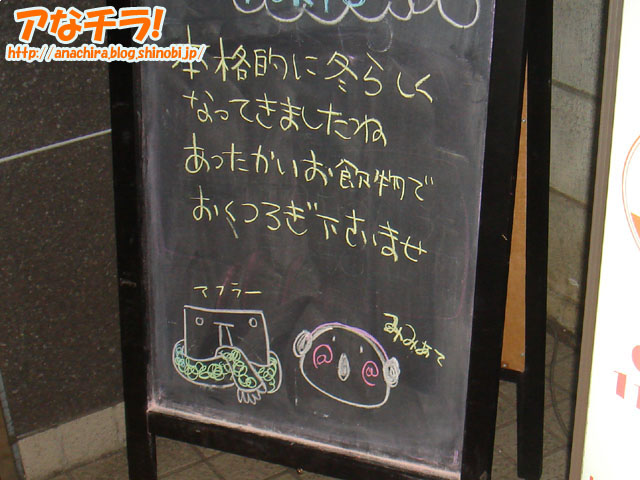 アなチラ!
http://anachira.blog.shinobi.jp/
本格的に冬らしく
なってきましたね
あったかいお飲物で
おくつろぎ下さいませ
マフラー
みみあて